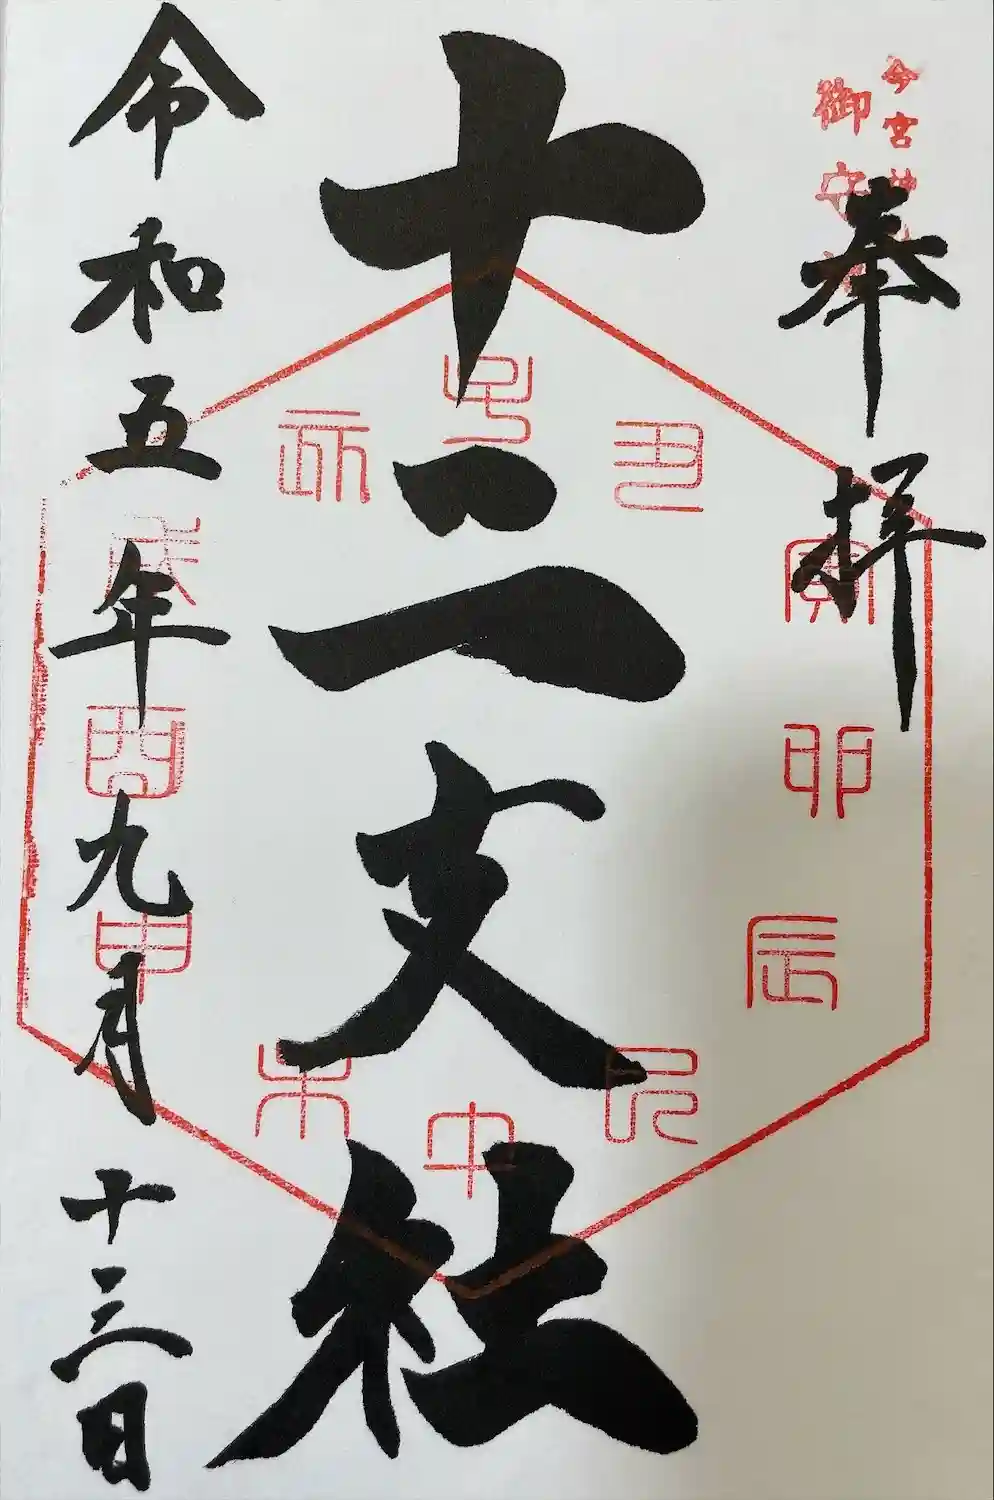 今宮神社
御守護
奉拝
十二支社
子
丑
寅
卯
辰
巳
午
未
申
酉
戌
亥
令和五年九月十三日